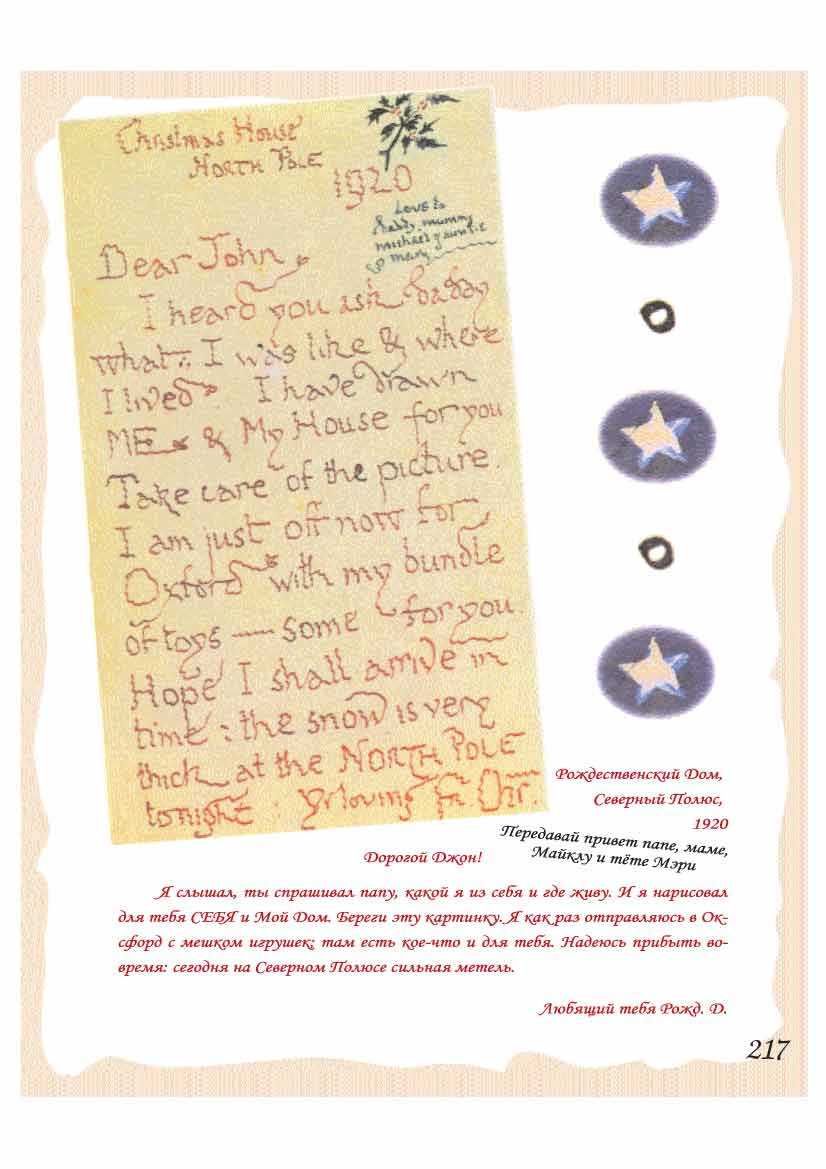 Christmas House
NORTH POLE
1920
Love to
daddy, mummy
michael & auntie
mary
Dear John
I heard you ask daddy
what I was like & where
I lived. I have drawn
ME & My House for you
Take care of the picture.
I am just off now for
Oxford with my bundle
of toys — some for you.
Hope I shall arrive in
time: the snow is very
thick at the NORTH POLE
tonight. Yr loving Fr. Chr.
Рождественский Дом,
Северный Полюс,
1920
Передавай привет папе, маме,
Майклу и тёте Мэри
Дорогой Джон!
Я слышал, ты спрашивал папу, какой я из себя и где живу. И я нарисовал
для тебя СЕБЯ и Мой Дом. Береги эту картинку. Я как раз отправляюсь в Ок-
сфорд с мешком игрушек; там есть кое-что и для тебя. Надеюсь прибыть во-
время: сегодня на Северном Полюсе сильная метель.
Любящий тебя Рожд. Д.
217